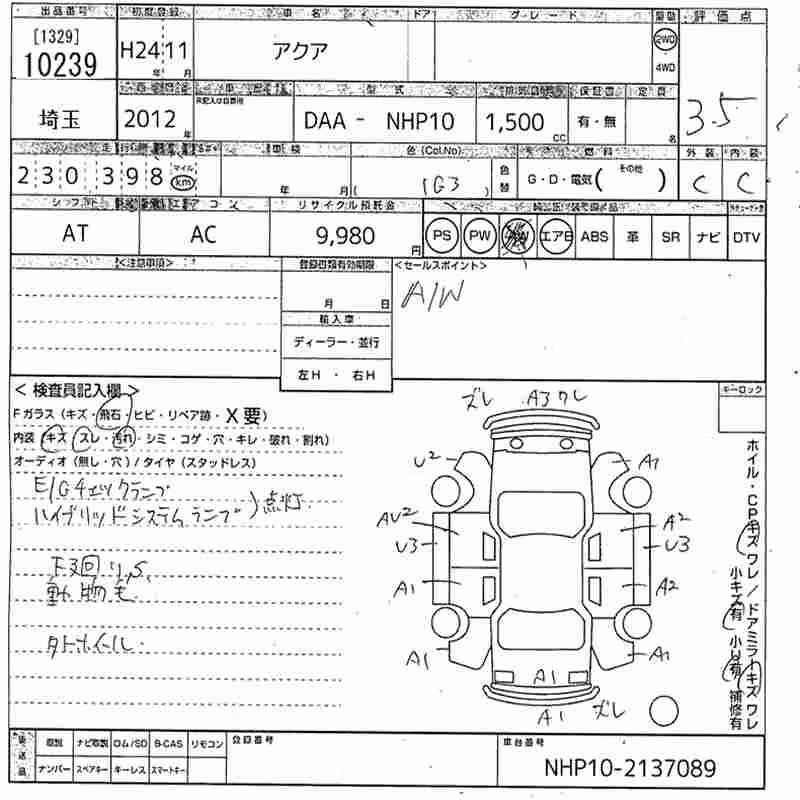 出品番号 初度登録 車名 ドア グレード 駆動 評価点
[1329]
10239 H24 11 アクア 2WD 3.5
年 月 4WD
車歴 型式 排気量 保証書 定員
埼玉 2012 年 DAA - NHP10 1,500 CC 有・無 名
走行 車検 色(Col.No) 燃料 外装 内装
230,398 マイル km 年 月 ( 1G3 ) 色替 G・D・電気( その他 ) C C
シフト エアコン リサイクル預託金
AT AC 9,980 円 PS PW AW エアB ABS 革 SR ナビ DTV
<注意事項> 登録書類有効期限 <セールスポイント>
月 日 A/W
輸入車
ディーラー・並行
左H ・ 右H
<検査員記入欄> キーロック
Fガラス(キズ・飛石・ヒビ・リペア跡・X要)
内装(キズ・スレ・汚れ・シミ・コゲ・穴・キレ・破れ・割れ)
オーディオ(無し・穴)/タイヤ(スタッドレス)
E/Gチェックランプ
ハイブリッドシステムランプ )点灯.
下回りS,
動物毛
タトホイル.
ズレ A3ワレ
U2 A1
AU2 A2
U3 U3
A1 A2
A1 A1
A1
A1 ズレ
ホイル・CPキズワレ/ドアミラーキズワレ
小キズ有 小U有 補修有
後送品 取説 ナビ取説 ロム/SD B-CAS リモコン 登録番号 車台番号
ナンバー スペアキー キーレス スマートキー NHP10-2137089